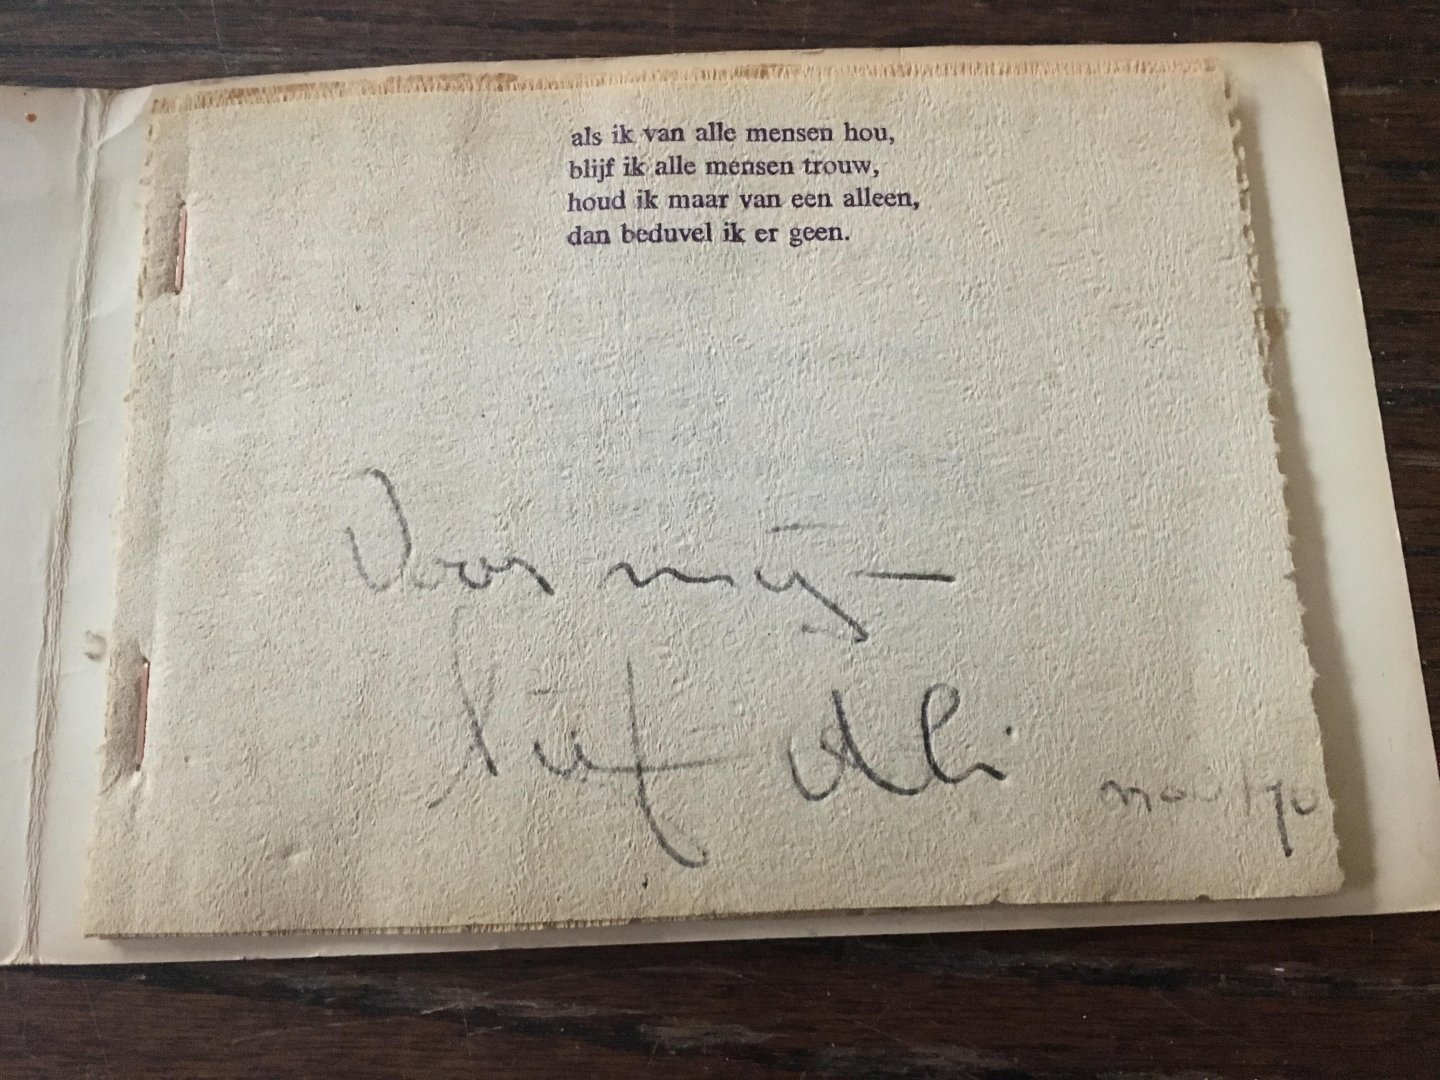 als ik van alle mensen hou,
blijf ik alle mensen trouw,
houd ik maar van een alleen,
dan beduvel ik er geen.
Voor mij —
lief
nov/70